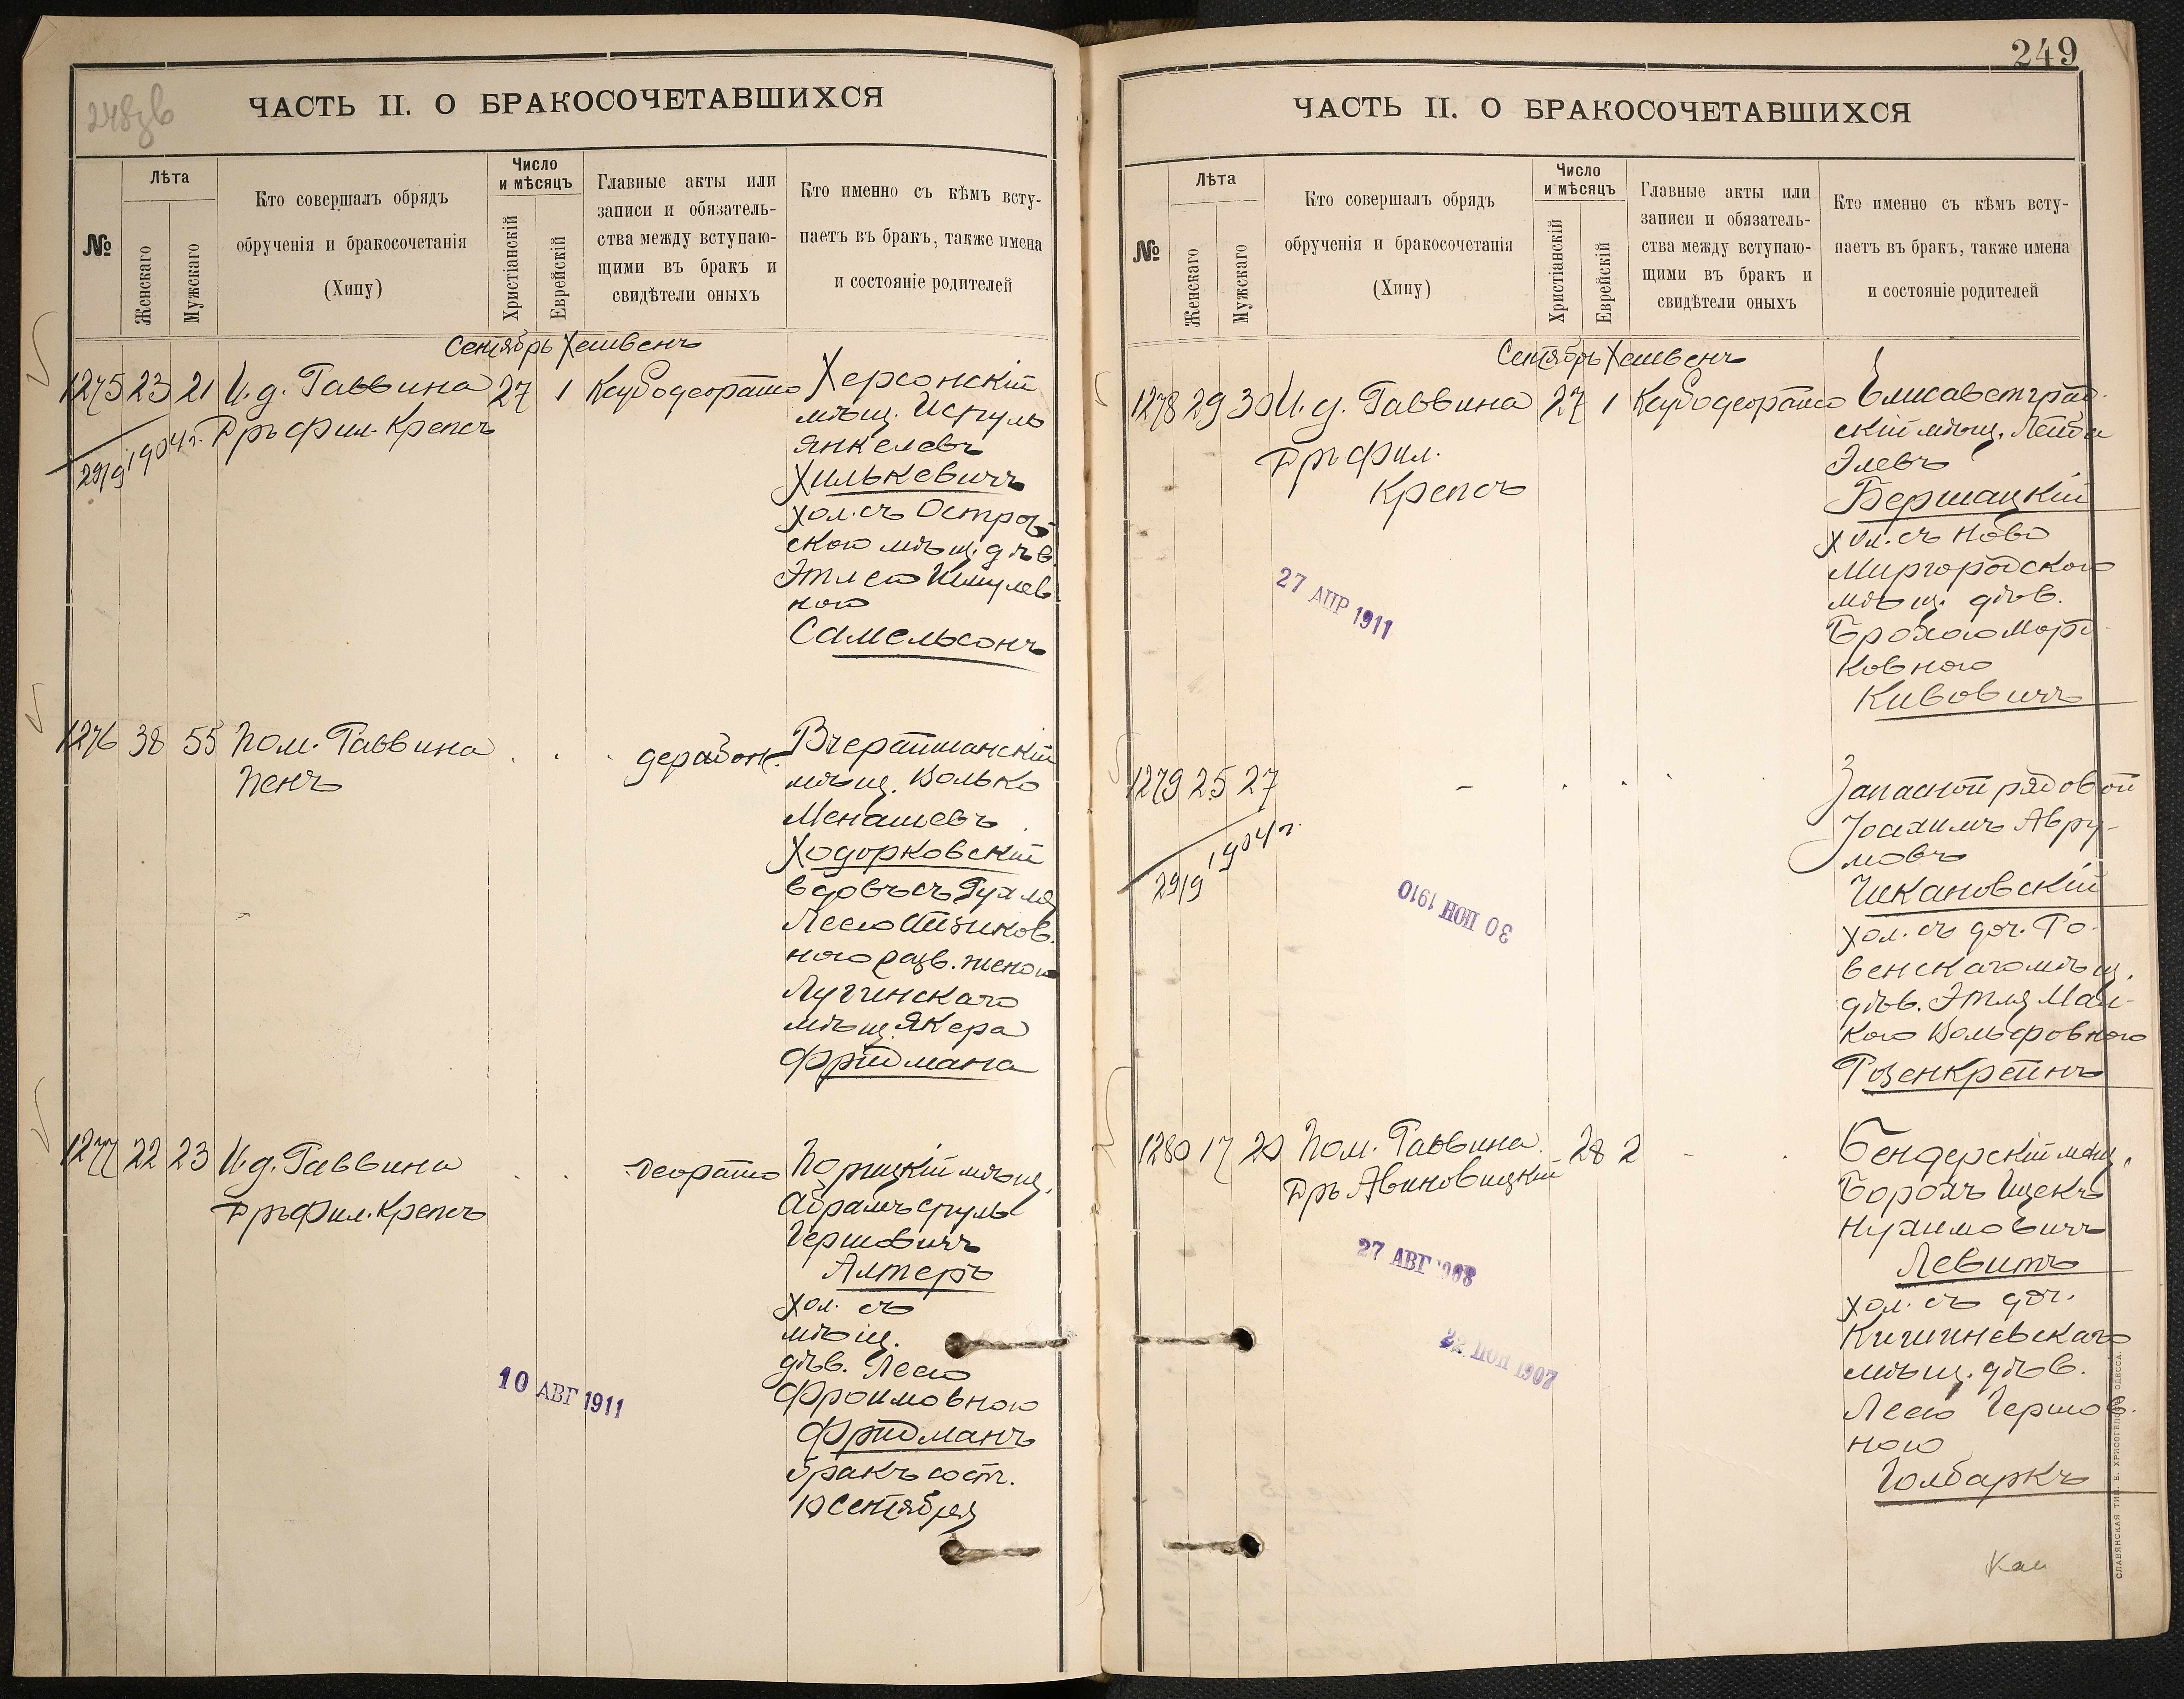 248зв
ЧАСТЬ II. О БРАКОСОЧЕТАВШИХСЯ
№
Лѣта
Женскаго
Мужскаго
Кто совершалъ обрядъ
обрученія и бракосочетанія
(Хипу)
Число
и мѣсяцъ
Христіанскій
Еврейскій
Главные акты или
записи и обязатель-
ства между вступаю-
щими въ бракъ и
свидѣтели оныхъ
Кто именно съ кѣмъ всту-
паетъ въ бракъ, также имена
и состояніе родителей
Сентябрь Хешвенъ
1275 23 21 И.д. Раввина 27 1
Др. Фил. Крепсъ
29/9 1904 г.
Херсонскій
мѣщ. Исруль
Янкелевъ
Хилькевичъ
хол. съ Остров-
скою мѣщ. дѣв.
Этлею Шмулев
ною
Самельсонъ
1276 38 55 Пом. Раввина
Пенъ
мѣщ. Волько
Менашевъ
Ходорковскій
вдовъ съ Рухля
Лесею
ною разв. женою
Лугинскаго
мѣщ. Якера
Фридмана
1277 22 23 И.д. Раввина
Др. Фил. Крепсъ
Деорайто
мѣщ.
Абрамъ Сруль
Гершовичъ
Алтеръ
хол. съ
мѣщ.
дѣв. Лесею
Фроимовною
Фридманъ
бракъ сост.
10 Сентября
10 АВГ 1911
249
ЧАСТЬ II. О БРАКОСОЧЕТАВШИХСЯ
№
Лѣта
Женскаго
Мужскаго
Кто совершалъ обрядъ
обрученія и бракосочетанія
(Хипу)
Число
и мѣсяцъ
Христіанскій
Еврейскій
Главные акты или
записи и обязатель-
ства между вступаю-
щими въ бракъ и
свидѣтели оныхъ
Кто именно съ кѣмъ всту-
паетъ въ бракъ, также имена
и состояніе родителей
Сентябрь Хешвенъ
1278 29 30 И.д. Раввина 27 1
Др. Фил.
Крепсъ
Елисаветград-
скій мѣщ. Лейба
Элевъ
Бершацкій
хол. съ Ново
Миргородскою
мѣщ. дѣв.
Брохою Морд
ковною
Кивовичъ
27 АПР 1911
1279 25 27
29/9 1904 г.
Запасной рядовой
Іоахимъ Авру-
мовъ
Чекановскій
хол. съ доч. Ро-
венскаго мѣщ.
дѣв. Этля Мал-
кою Вольфовною
Розенкрейнъ
30 ІЮН 1910
1280 17 20 Пом. Раввина 28 2
Др. Авиновицкій
Бендерскій мѣщ.
Борохъ Ицекъ
Нухимовичъ
Левитъ
хол. съ доч.
Кишиневскаго
мѣщ. дѣв.
Лею Гершов-
ною
Голбаркъ
27 АВГ 1908
22 ІЮН 1907
СЛАВЯНСКАЯ ТИП. Е. ХРИСОГЕЛОСЪ ОДЕССА.